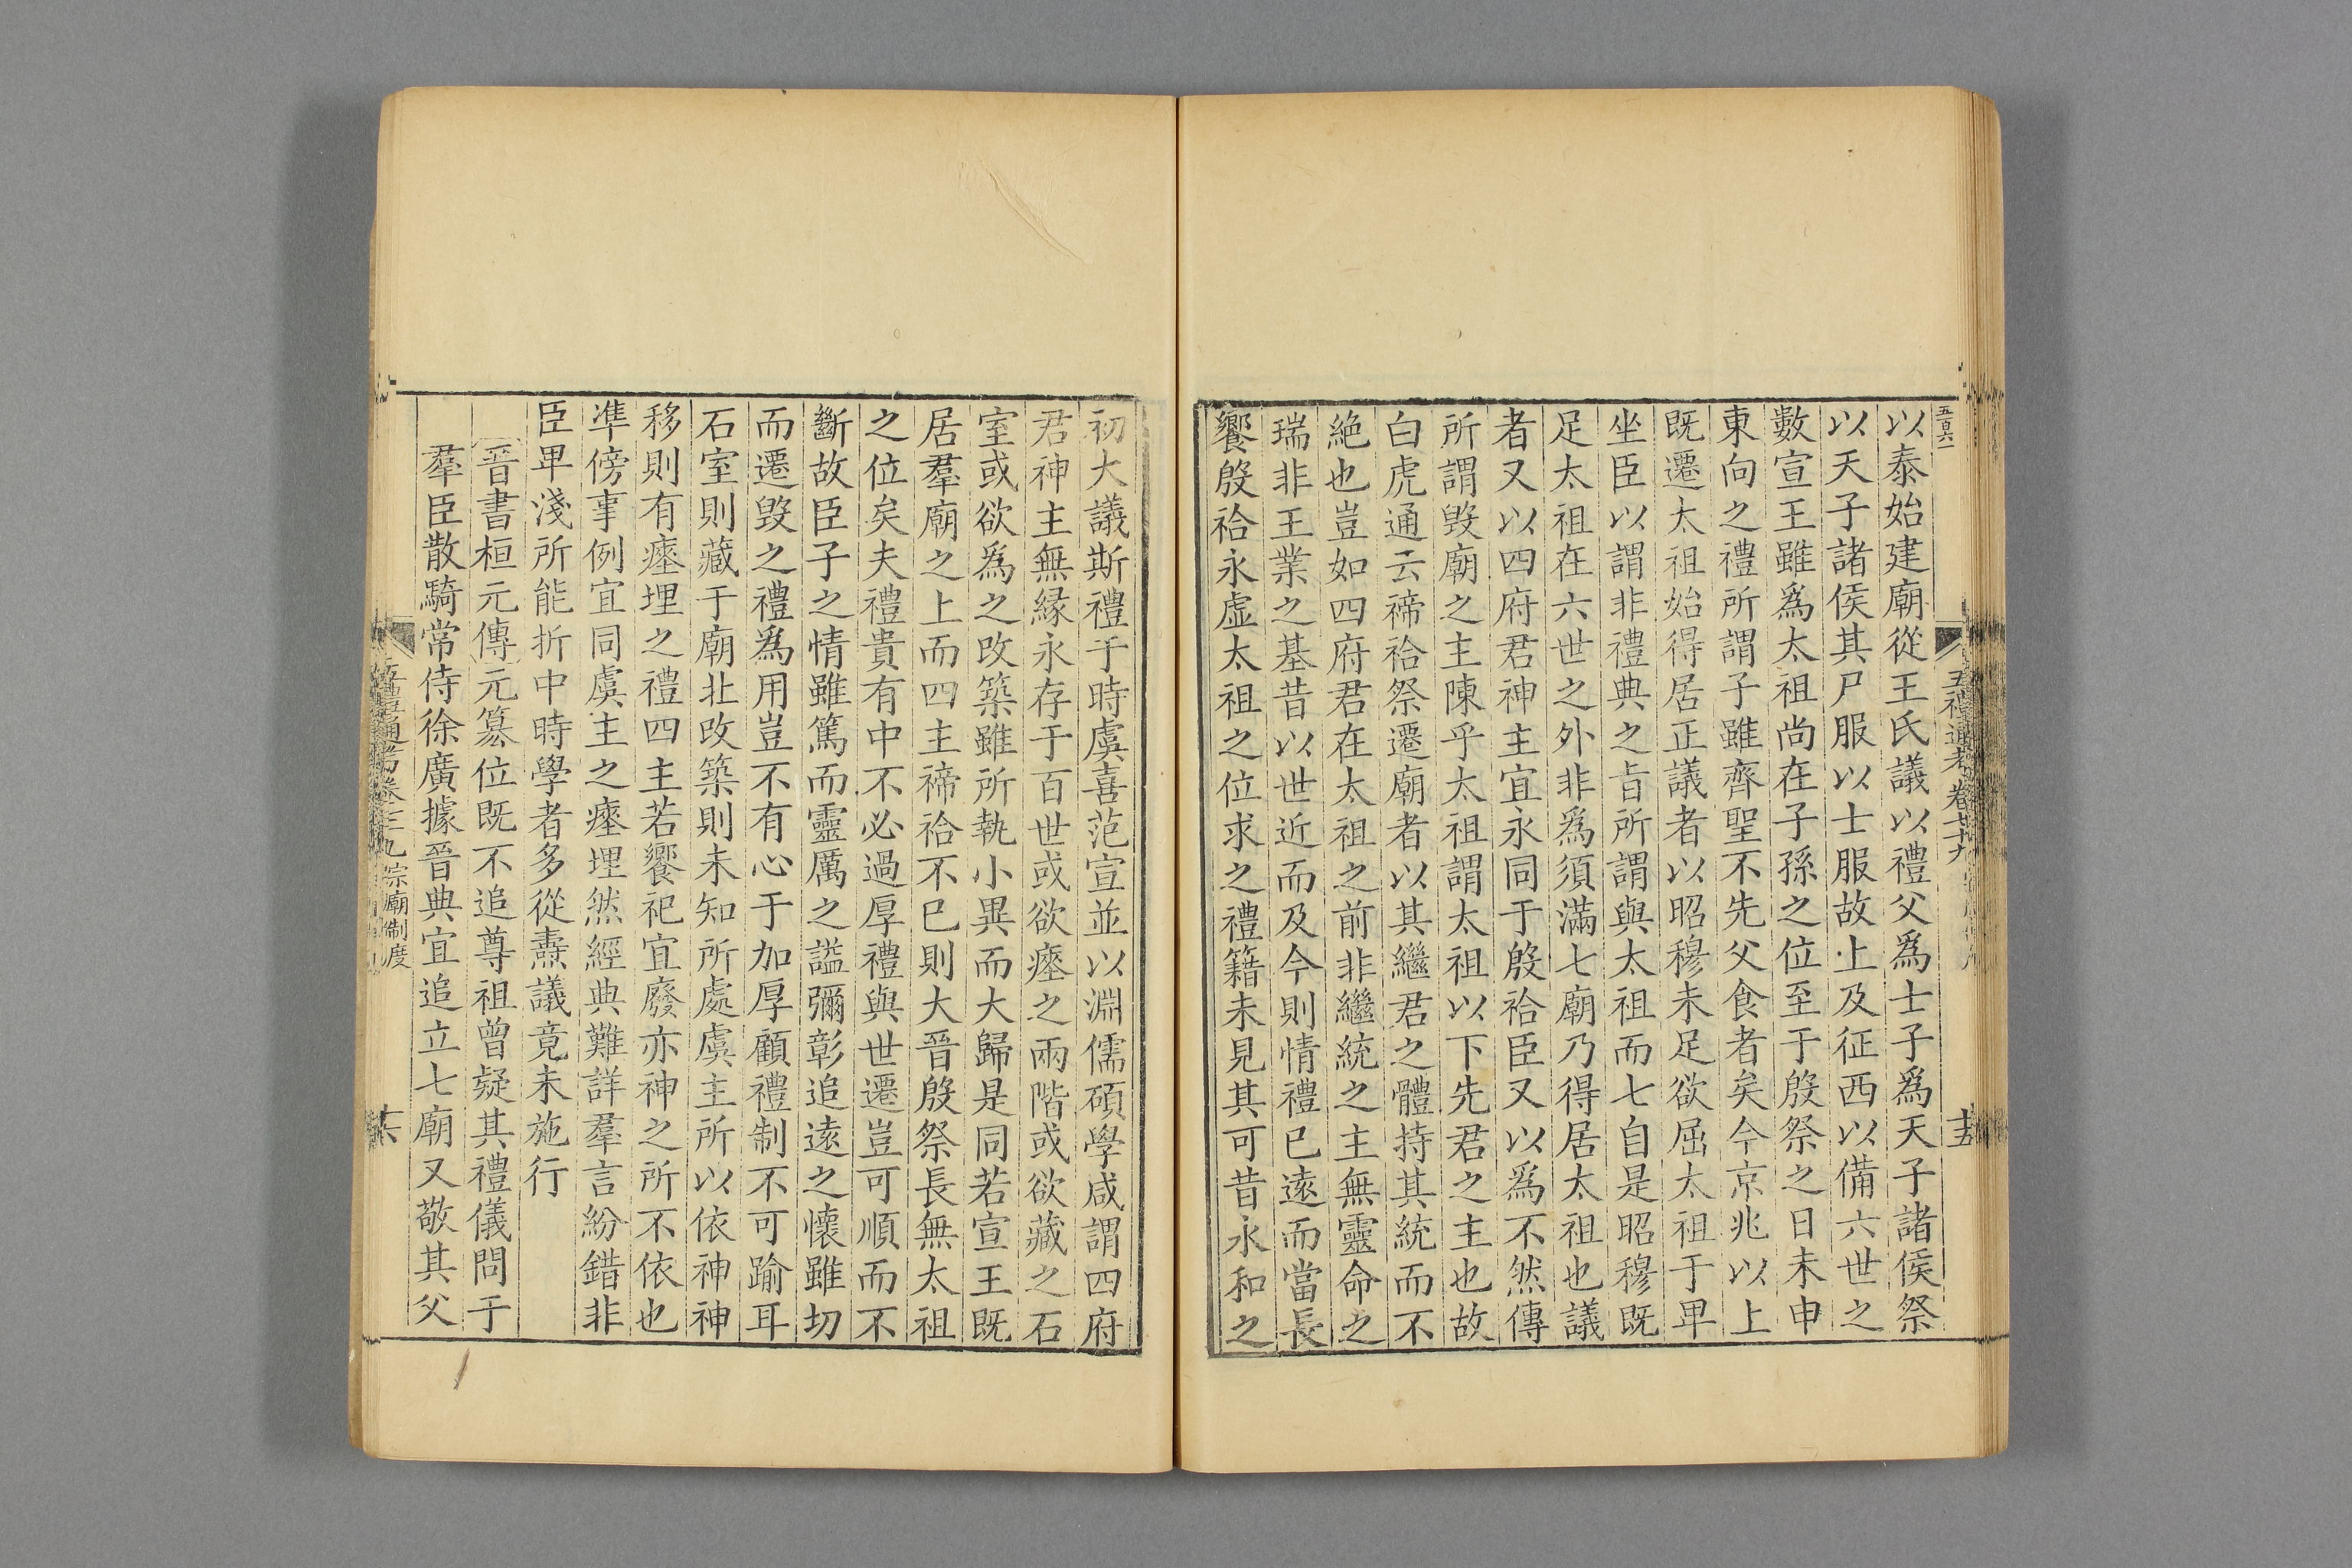 五百六一
五禮通考卷七十九
十五
以泰始建廟從王氏議以禮父爲士子爲天子諸侯祭
以天子諸侯其尸服以士服故上及征西以備六世之
數宣王雖爲太祖尚在子孫之位至于殷祭之日未申
東向之禮所謂子雖齊聖不先父食者矣今京兆以上
既遷太祖始得居正議者以昭穆未足欲屈太祖于𤰞
坐臣以謂非禮典之旨所謂與太祖而七自是昭穆既
足太祖在六世之外非爲須滿七廟乃得居太祖也議
者又以四府君神主宜永同于殷祫臣又以爲不然傳
所謂毀廟之主陳乎太祖謂太祖以下先君之主也故
白虎通云禘祫祭遷廟者以其繼君之體持其統而不
絶也豈如四府君在太祖之前非繼統之主無靈命之
瑞非王業之基昔以世近而及今則情禮已遠而當長
饗殷祫永虛太祖之位求之禮籍未見其可昔永和之
初大議斯禮于時虞喜范宣並以淵儒碩學咸謂四府
君神主無緣永存于百世或欲瘞之兩階或欲藏之石
室或欲爲之改築雖所執小異而大歸是同若宣王既
居羣廟之上而四主禘祫不已則大晉殷祭長無太祖
之位矣夫禮貴有中不必過厚禮與世遷豈可順而不
斷故臣子之情雖篤而靈厲之謚彌彰追遠之懷雖切
而遷毀之禮爲用豈不有心于加厚顧禮制不可踰耳
石室則藏于廟北改築則未知所處虞主所以依神神
移則有瘞埋之禮四主若饗祀宜廢亦神之所不依也
準傍事例宜同虞主之瘞埋然經典難詳羣言紛錯非
臣𤰞淺所能折中時學者多從燾議竟未施行
晉書桓元傳元篡位既不追尊祖曾疑其禮儀問于
羣臣散騎常侍徐廣據晉典宜追立七廟又敬其父
宗廟制度
十六